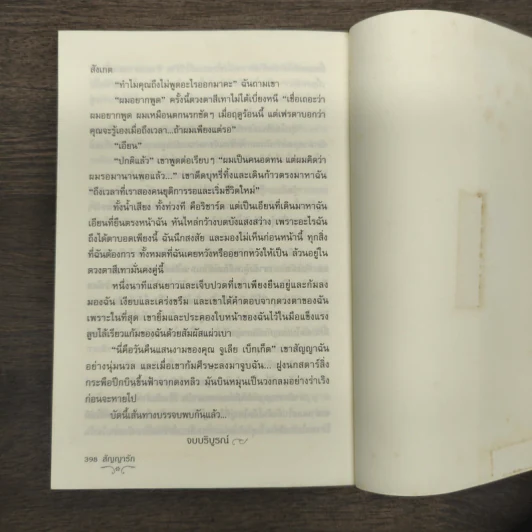 สังเกต
“ทำไมคุณถึงไม่พูดอะไรออกมาคะ” ฉันถามเขา
“ผมอยากพูด” ครั้งนี้ดวงตาสีเทาไม่ได้เบี่ยงหนี “เชื่อเถอะว่า
ผมอยากพูด ผมเหมือนตกนรกชัดๆ เมื่อฤดูร้อนนี้ แต่เฟรดาบอกว่า
คุณจะรู้เองเมื่อถึงเวลา...ถ้าผมเพียงแต่รอ”
“เอียน”
“ปกติแล้ว” เขาพูดต่อเรียบๆ “ผมเป็นคนอดทน แต่ผมคิดว่า
ผมรอมานานพอแล้ว...” เขาดีดบุหรี่ทิ้งและเดินก้าวตรงมาหาฉัน
“ถึงเวลาที่เราสองคนยุติการรอและเริ่มชีวิตใหม่”
ทั้งน้ำเสียง ทั้งท่วงที คือริชาร์ด แต่เป็นเอียนที่เดินมาหาฉัน
เอียนที่ยืนตรงหน้าฉัน ที่นไหล่กว้างบดบังแสงสว่าง เพราะอะไรฉัน
ถึงได้ตาบอดเพียงนี้ ฉันนึกสงสัย และมองไม่เห็นก่อนหน้านี้ ทุกสิ่ง
ที่ฉันต้องการ ทั้งหมดที่ฉันเคยหวังหรืออยากหวังให้เป็น ล้วนอยู่ใน
ดวงตาสีเทามั่นคงคู่นี้
หนึ่งนาทีแสนยาวและเจ็บปวดที่เขาเพียงยืนอยู่และก้มลง
มองฉัน เงียบและเคร่งขรึม และเขาได้คำตอบจากดวงตาของฉัน
เพราะในที่สุด เขายิ้มและประคองใบหน้าของฉันไว้ในมือแข็งแรง
ลูบไล้เรียวแก้มของฉันด้วยสัมผัสแผ่วเบา
“นี่คือวันคืนแสนงามของคุณ จูเลีย เบ็กเก็ต” เขาสัญญาฉัน
อย่างนุ่มนวล และเมื่อเขาก้มศีรษะลงมาจูบฉัน... ฝูงนกสตาร์ลิง
กระพือปีกบินขึ้นฟ้าจากดงหลิว มันบินหมุนเป็นวงกลมอย่างร่าเริง
ก่อนจะหายไป
บัดนี้เส้นทางบรรจบพบกันแล้ว...
จบบริบูรณ์
398 สัญญารัก